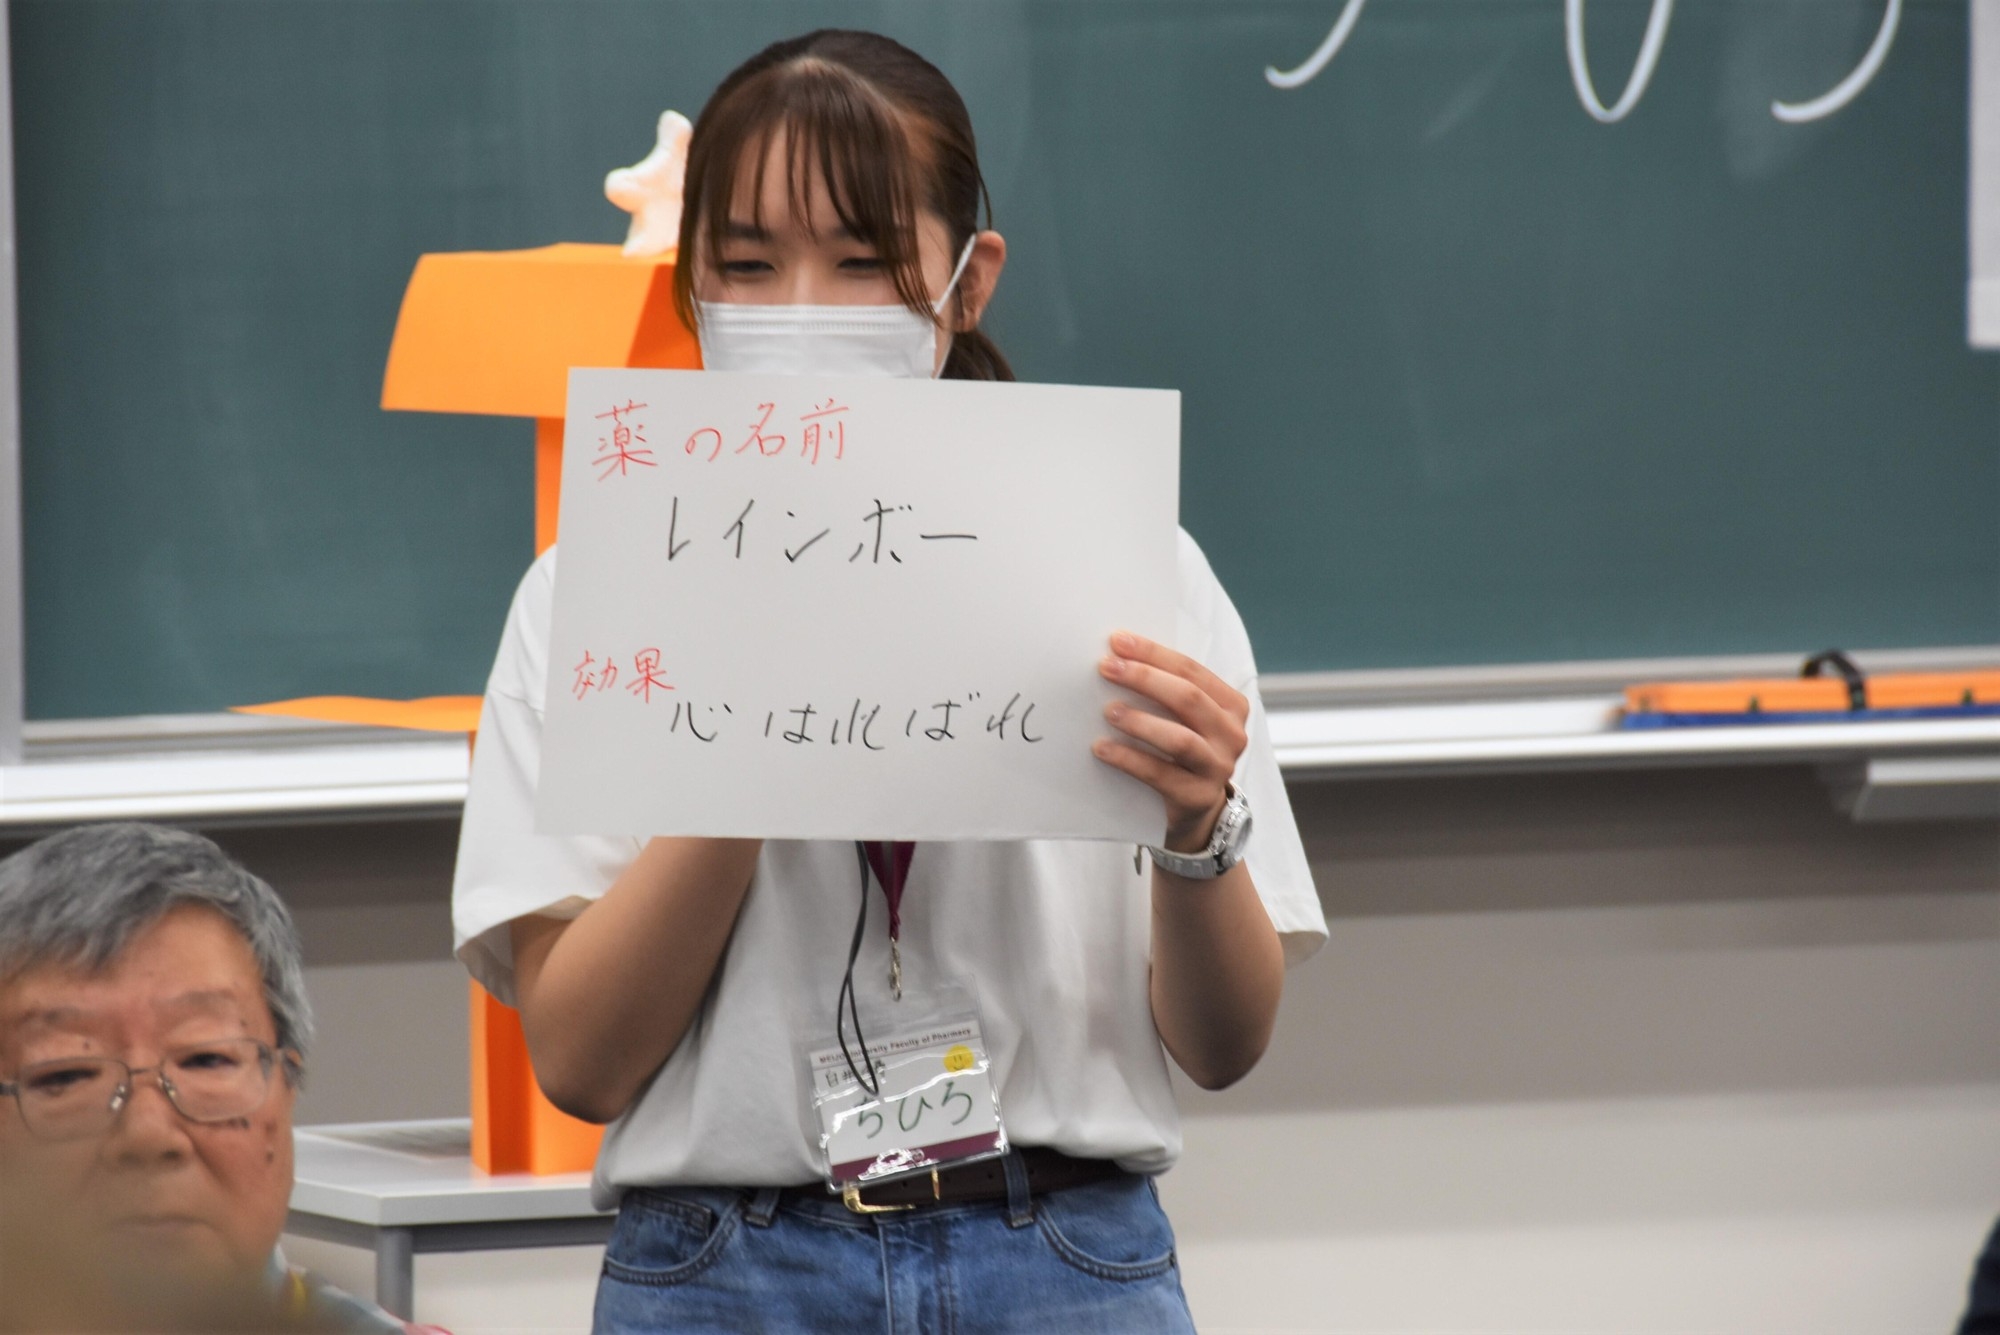 薬の名前
レインボー
効果
心はればれ
MEIJO University Faculty of Pharmacy
ちひろ